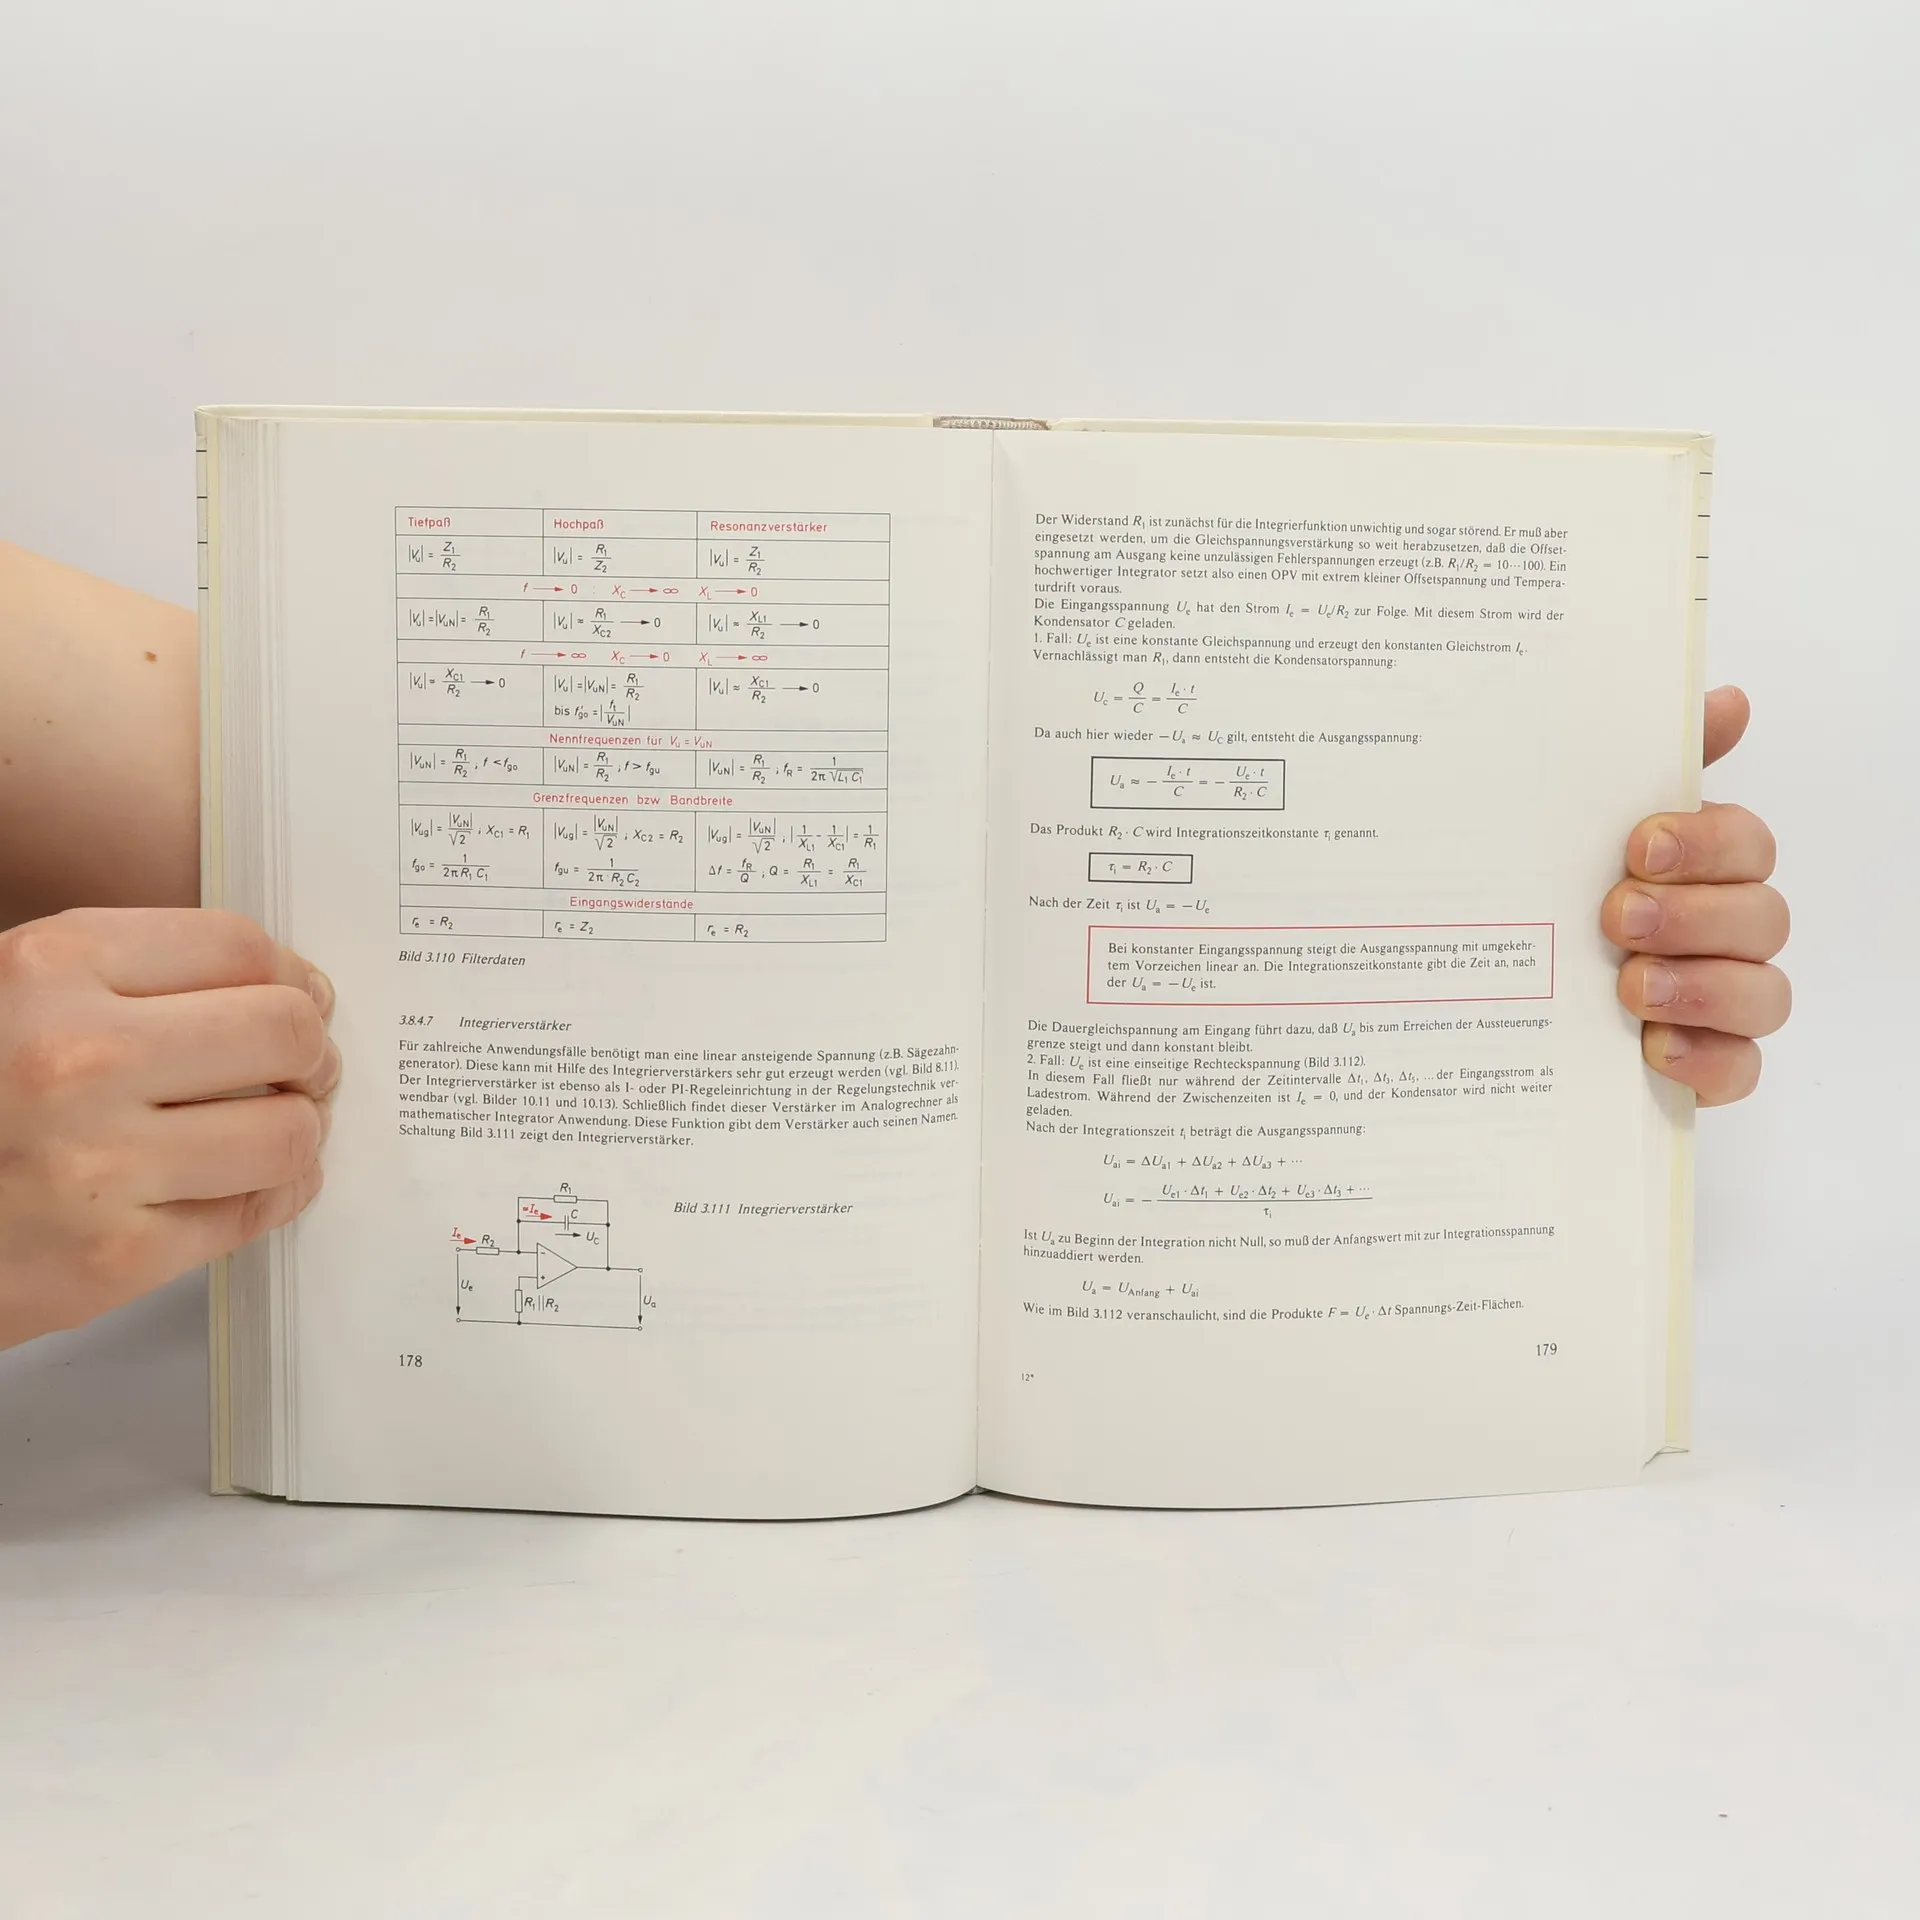 Tiefpaß Hochpaß Resonanzverstärker
|Vu| = Z1/R2 |Vu| = R1/Z2 |Vu| = Z1/R2
f → 0 : XC → ∞ XL → 0
|Vu| = |VuN| = R1/R2 |Vu| ≈ R1/XC2 → 0 |Vu| ≈ XL1/R2 → 0
f → ∞ XC → 0 XL → ∞
|Vu| ≈ XC1/R2 → 0 |Vu| = |VuN| = R1/R2 |Vu| ≈ XC1/R2 → 0
bis f'go = |f1/VuN|
Nennfrequenzen für Vu = VuN
|VuN| = R1/R2 ; f < fgo |VuN| = R1/R2 ; f > fgu |VuN| = R1/R2 ; fR = 1/(2π √L1 C1)
Grenzfrequenzen bzw Bandbreite
|Vug| = |VuN|/√2 ; XC1 = R1 |Vug| = |VuN|/√2 ; XC2 = R2 |Vug| = |VuN|/√2 ; |1/XL1 - 1/XC1| = 1/R1
fgo = 1/(2π R1 C1) fgu = 1/(2π · R2 C2) Δf = fR/Q ; Q = R1/XL1 = R1/XC1
Eingangswiderstände
re = R2 re = Z2 re = R2
Bild 3.110 Filterdaten
3.8.4.7 Integrierverstärker
Für zahlreiche Anwendungsfälle benötigt man eine linear ansteigende Spannung (z.B. Sägezahn-
generator). Diese kann mit Hilfe des Integrierverstärkers sehr gut erzeugt werden (vgl. Bild 8.11).
Der Integrierverstärker ist ebenso als I- oder PI-Regeleinrichtung in der Regelungstechnik ver-
wendbar (vgl. Bilder 10.11 und 10.13). Schließlich findet dieser Verstärker im Analogrechner als
mathematischer Integrator Anwendung. Diese Funktion gibt dem Verstärker auch seinen Namen.
Schaltung Bild 3.111 zeigt den Integrierverstärker.
R1
≈Ie C
Ie R2 UC
- 
+
Ue R1||R2 Ua
Bild 3.111 Integrierverstärker
178
Der Widerstand R1 ist zunächst für die Integrierfunktion unwichtig und sogar störend. Er muß aber
eingesetzt werden, um die Gleichspannungsverstärkung so weit herabzusetzen, daß die Offset-
spannung am Ausgang keine unzulässigen Fehlerspannungen erzeugt (z.B. R1/R2 = 10···100). Ein
hochwertiger Integrator setzt also einen OPV mit extrem kleiner Offsetspannung und Tempera-
turdrift voraus.
Die Eingangsspannung Ue hat den Strom Ie = Ue/R2 zur Folge. Mit diesem Strom wird der
Kondensator C geladen.
1. Fall: Ue ist eine konstante Gleichspannung und erzeugt den konstanten Gleichstrom Ie.
Vernachlässigt man R1, dann entsteht die Kondensatorspannung:
Uc = Q/C = Ie · t/C
Da auch hier wieder − Ua ≈ UC gilt, entsteht die Ausgangsspannung:
Ua ≈ − Ie · t/C = − Ue · t/(R2 · C)
Das Produkt R2 · C wird Integrationszeitkonstante τi genannt.
τi = R2 · C
Nach der Zeit τi ist Ua = − Ue
Bei konstanter Eingangsspannung steigt die Ausgangsspannung mit umgekehr-
tem Vorzeichen linear an. Die Integrationszeitkonstante gibt die Zeit an, nach
der Ua = − Ue ist.
Die Dauergleichspannung am Eingang führt dazu, daß Ua bis zum Erreichen der Aussteuerungs-
grenze steigt und dann konstant bleibt.
2. Fall: Ue ist eine einseitige Rechteckspannung (Bild 3.112).
In diesem Fall fließt nur während der Zeitintervalle Δt1, Δt3, Δt5, ... der Eingangsstrom als
Ladestrom. Während der Zwischenzeiten ist Ie = 0, und der Kondensator wird nicht weiter
geladen.
Nach der Integrationszeit ti beträgt die Ausgangsspannung:
Uai = ΔUa1 + ΔUa2 + ΔUa3 + ···
Uai = − (Ue1 · Δt1 + Ue2 · Δt2 + Ue3 · Δt3 + ···)/τi
Ist Ua zu Beginn der Integration nicht Null, so muß der Anfangswert mit zur Integrationsspannung
hinzuaddiert werden.
Ua = UAnfang + Uai
Wie im Bild 3.112 veranschaulicht, sind die Produkte F = Ue · Δt Spannungs-Zeit-Flächen.
179
12*